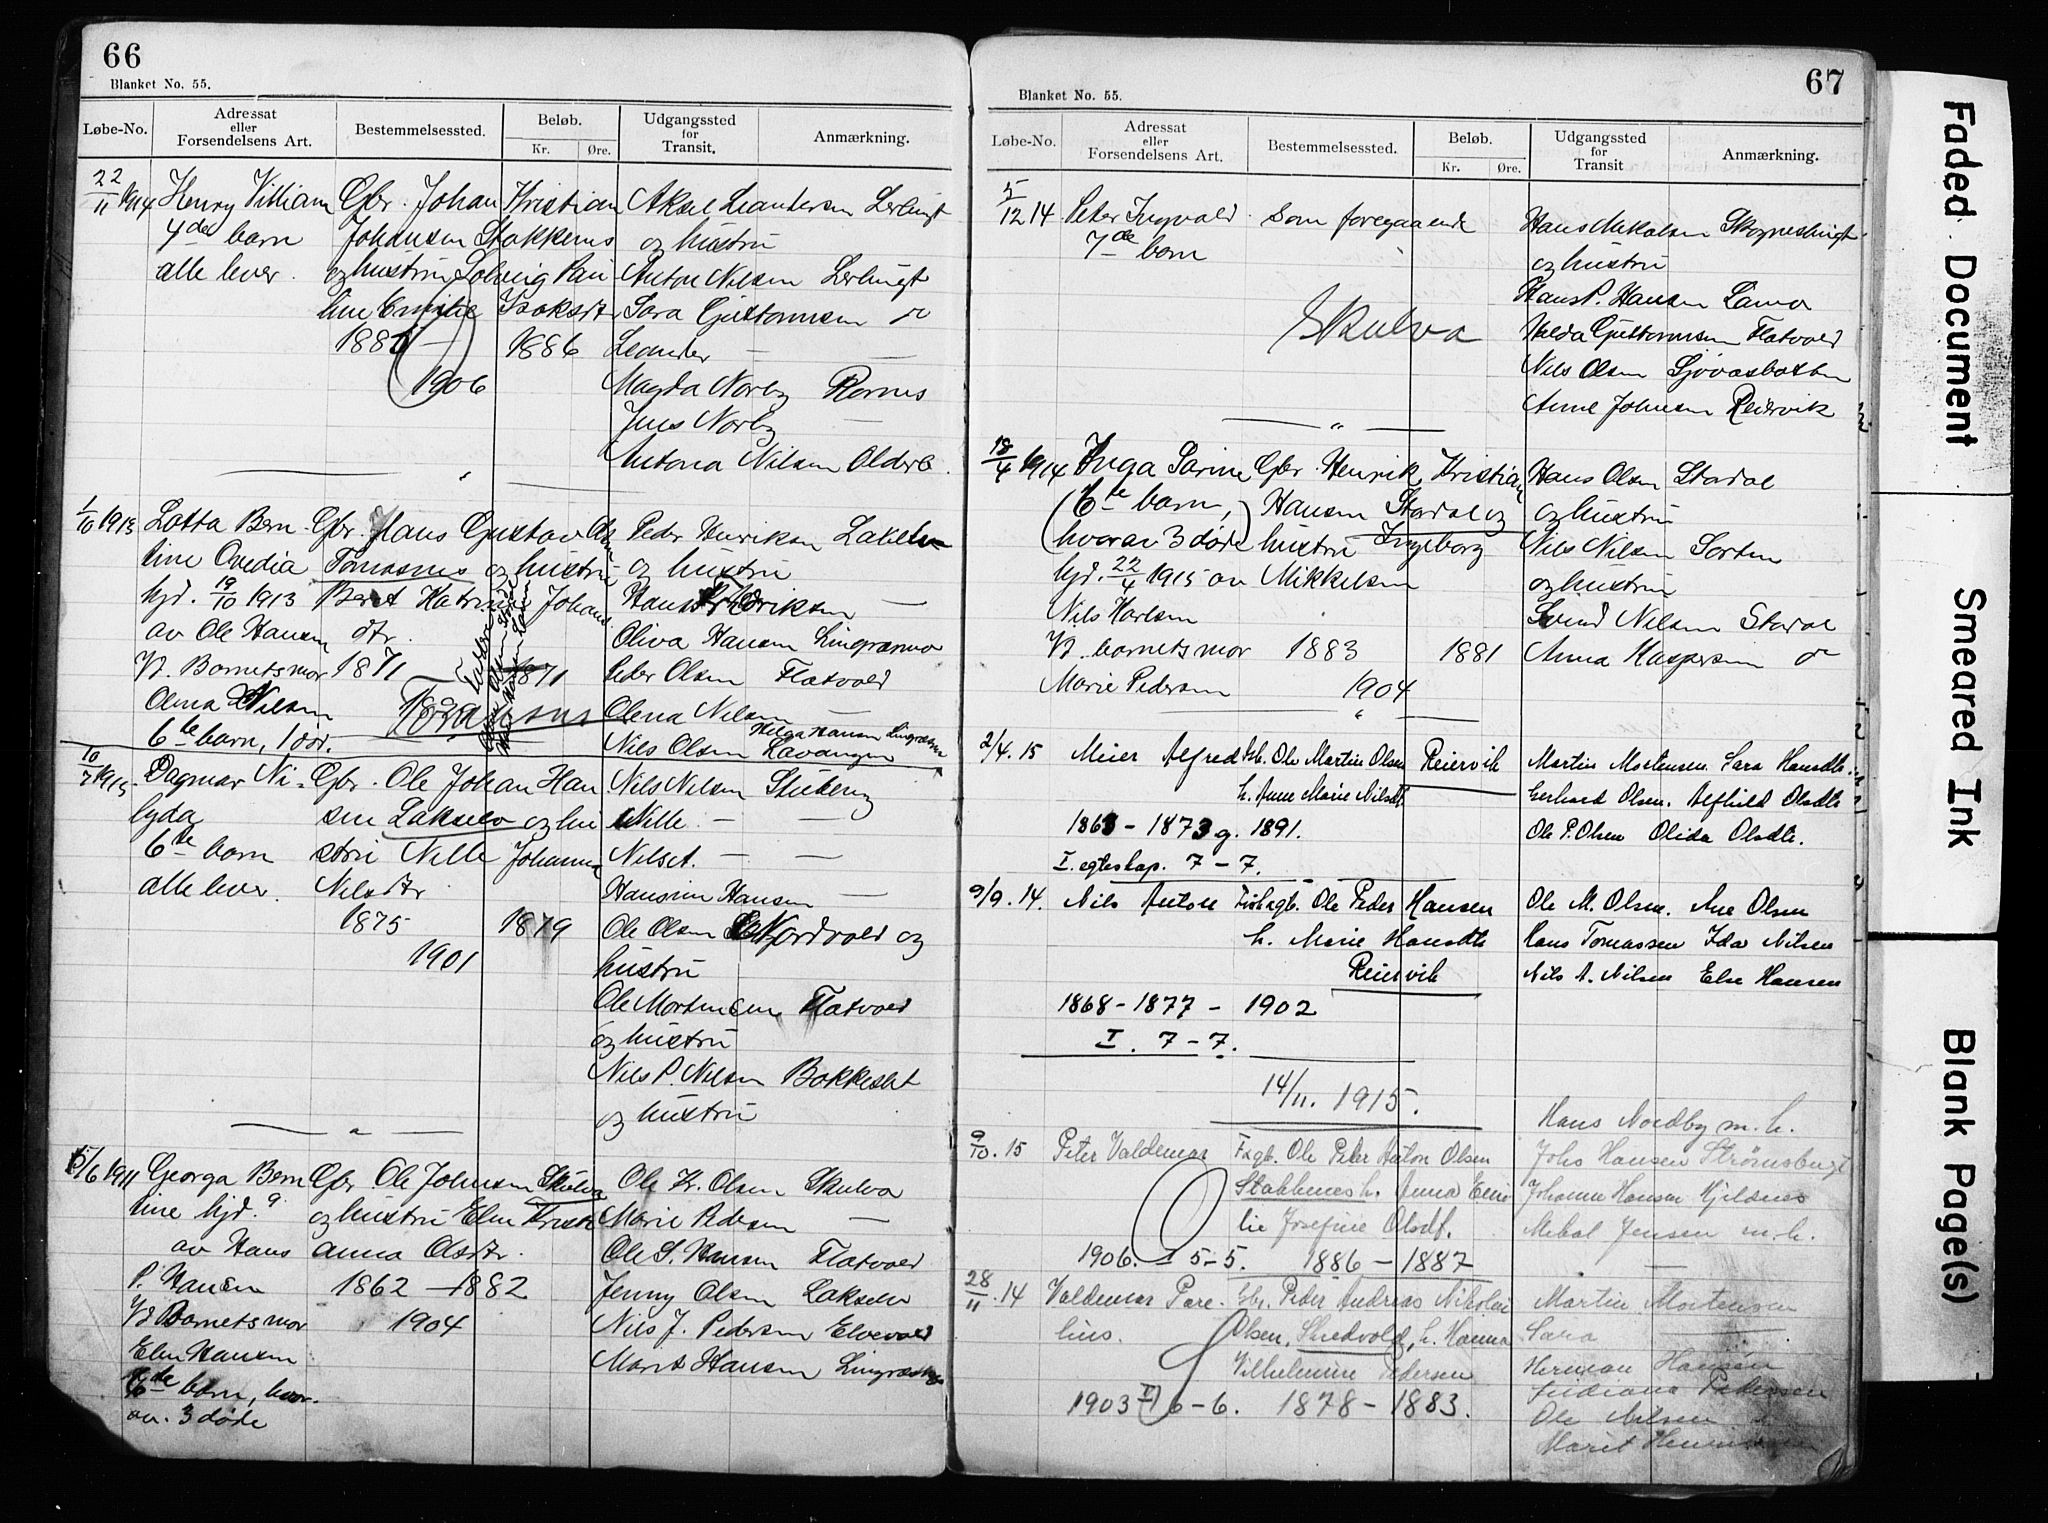 66
Blanket No. 55.
Løbe-No. Adressat eller Forsendelsens Art. Bestemmelsessted. Beløb. Kr. Øre. Udgangssted for Transit. Anmærkning.
22/11 1914 Henry Villiam Gbr. Johan Kristian Aksel Leandersen Lerbugt
4de barn Johansen Stakkenes og hustru
alle lever. og hustru Solveig Pau Anton Nilsen Lerbugt
line Emilie Isaksdtr Sara Gustavnsen do
1886 Leander — —
1906 Magda Norby Rornes
Jens Norby —
Antona Nilsen Olderb.
1/10 1913 Lotta Bern Gbr. Hans Gustav Peder Henriksen Lakselv
tine Ovedia Tomasnes og hustru og hustru
hjd. 19/10 1913 Beret Katrine Johans Hans Fredriksen —
av Ole Hansen dtr. Oliva Hansen Lingræsmo
Vt. Barnets mor 1871 1871 Peder Olsen Flatvold
Olma Nilsen Tomasnes Olena Nilsen —
6te barn, 1 død. Nils Olsen Lavangen
Helga Hansen
10/7 1915 Dagmar Ni- Gbr. Ole Johan Han Nils Nilsen Stuberg
lyda sen Lakselv og hu Nille — —
6te barn stru Nille Johanna Nils A. — —
alle lever. Nilsdtr Hansine Hansen —
1875 1879 Ole Olsen Nordvold og
1901 hustru
Ole Mortensen Flatvold
og hustru
Nils P. Nilsen Bakkeslet
og hustru
15/6 1911 Georga Bern Gbr Ole Johnsen Skulva Ole Kr. Olsen Skulva
tine hjd. ? og hustru Elen Krist Marie Pedersen —
av Hans anna Olsdtr. Ole S. Hansen Flatvold
P. Hansen 1862 — 1882 Jenny Olsen Lakselv
Vt Barnets mor 1904 Nils J. Pedersen Elvevold
Elen Hansen Marit Hansen
6te barn, hvor.
av. 3 døde
67
Blanket No. 55.
Løbe-No. Adressat eller Forsendelsens Art. Bestemmelsessted. Beløb. Kr. Øre. Udgangssted for Transit Anmærkning.
5/12 14 Peter Ingvald Som foregaaende Hans Mikalsen Skognesbugt
7de barn og hustru
Hans P. Hansen Lamo
Skulva Valda Gustavnsen Flatvold
Nils Olsen Sjövasbotten
Anne Johnsen Reiervik
18/4 1914 Inga Sarine Gbr Henrik Kristian Hans Olsen Stordal
(6te barn, Hansen Stordal og og hustru
hvorav 3 døde) hustru Ingeborg Nils Nilsen Sorten
hjd. 22/4 1915 av Mikkelsen og hustru
Nils Karlsen Nilsen Stordal
Vt. barnets mor 1883 1881 Anna Kaspersen do
Marie Pedersen 1904
2/4. 15 Meier Alfred Gb. Ole Martin Olsen Reiervik Martin Mortensen. Sara Hansdtr.
h. Anne Marie Nilsdt. Gerhard Olsen. Alfhild Olsdtr
1863 – 1873 g. 1891. Ole P. Olsen Olida Olsdtr.
I. egteskap. 7 – 7.
9/9. 14. Nils Anton Ole Peder Hansen Ole M. Olsen. Ane Olsen
h. Marie Hansdtr Hans Tomassen Ida Nilsen
Reiervik Nils A. Nilsen Else Hansen
1868 – 1877 – 1902
I. 7 – 7.
14/11. 1915.
Hans Nordby m. h.
9/10. 15 Peter Valdemar Fogb. Ole Peder Anton Olsen Johs Hansen Strømsbugt
Stakkenes h. Anna Emi Johanne Hansen Kjilsnes
lie Josefine Olsdt. Mekal Jensen m. h.
1906. I 5-5. 1886 – 1887
28/11. 14 Valdemar Pare. Gbr. Peder Andreas Nikolai Martin Mortensen
lius. Olsen, Skredvold, h. Hanna Sara
Vilhelmine Pedersen Herman Hansen
1903 6 – 6. 1878 – 1883. Indiana Pedersen
Ole Nilsen
Marit
Faded Document
Smeared Ink
Blank Page(s)